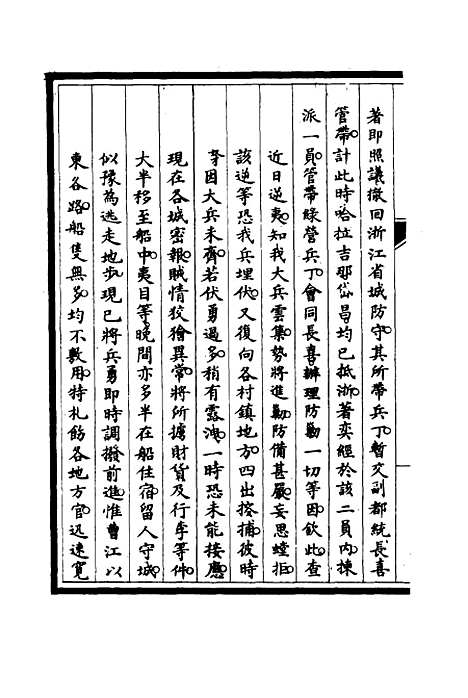 著即照議撤回浙江省城防守其所帶兵丁暫交副都統長喜
管帶計此時哈拉吉那岱昌均已抵浙著奕經於該二員內揀
派一員管帶綠營兵丁會同長喜辦理防勦一切等因欽此查
近日逆夷知我大兵雲集勢將進勦防備甚嚴妄思螳拒
該逆等恐我兵埋伏又復向各村鎮地方四出搜捕彼時
我因大兵未齊若伏勇過多稍有露洩一時恐未能接應
現在各城密報賊情狡獪異常將所擄財貨及行李等件
大半移至船中夷目等晚間亦多半在船住宿留人守城
似豫為逃走地步現已將兵勇即時調撥前進惟曹江以
東各路船隻無多均不敷用特札飭各地方官迅速寬